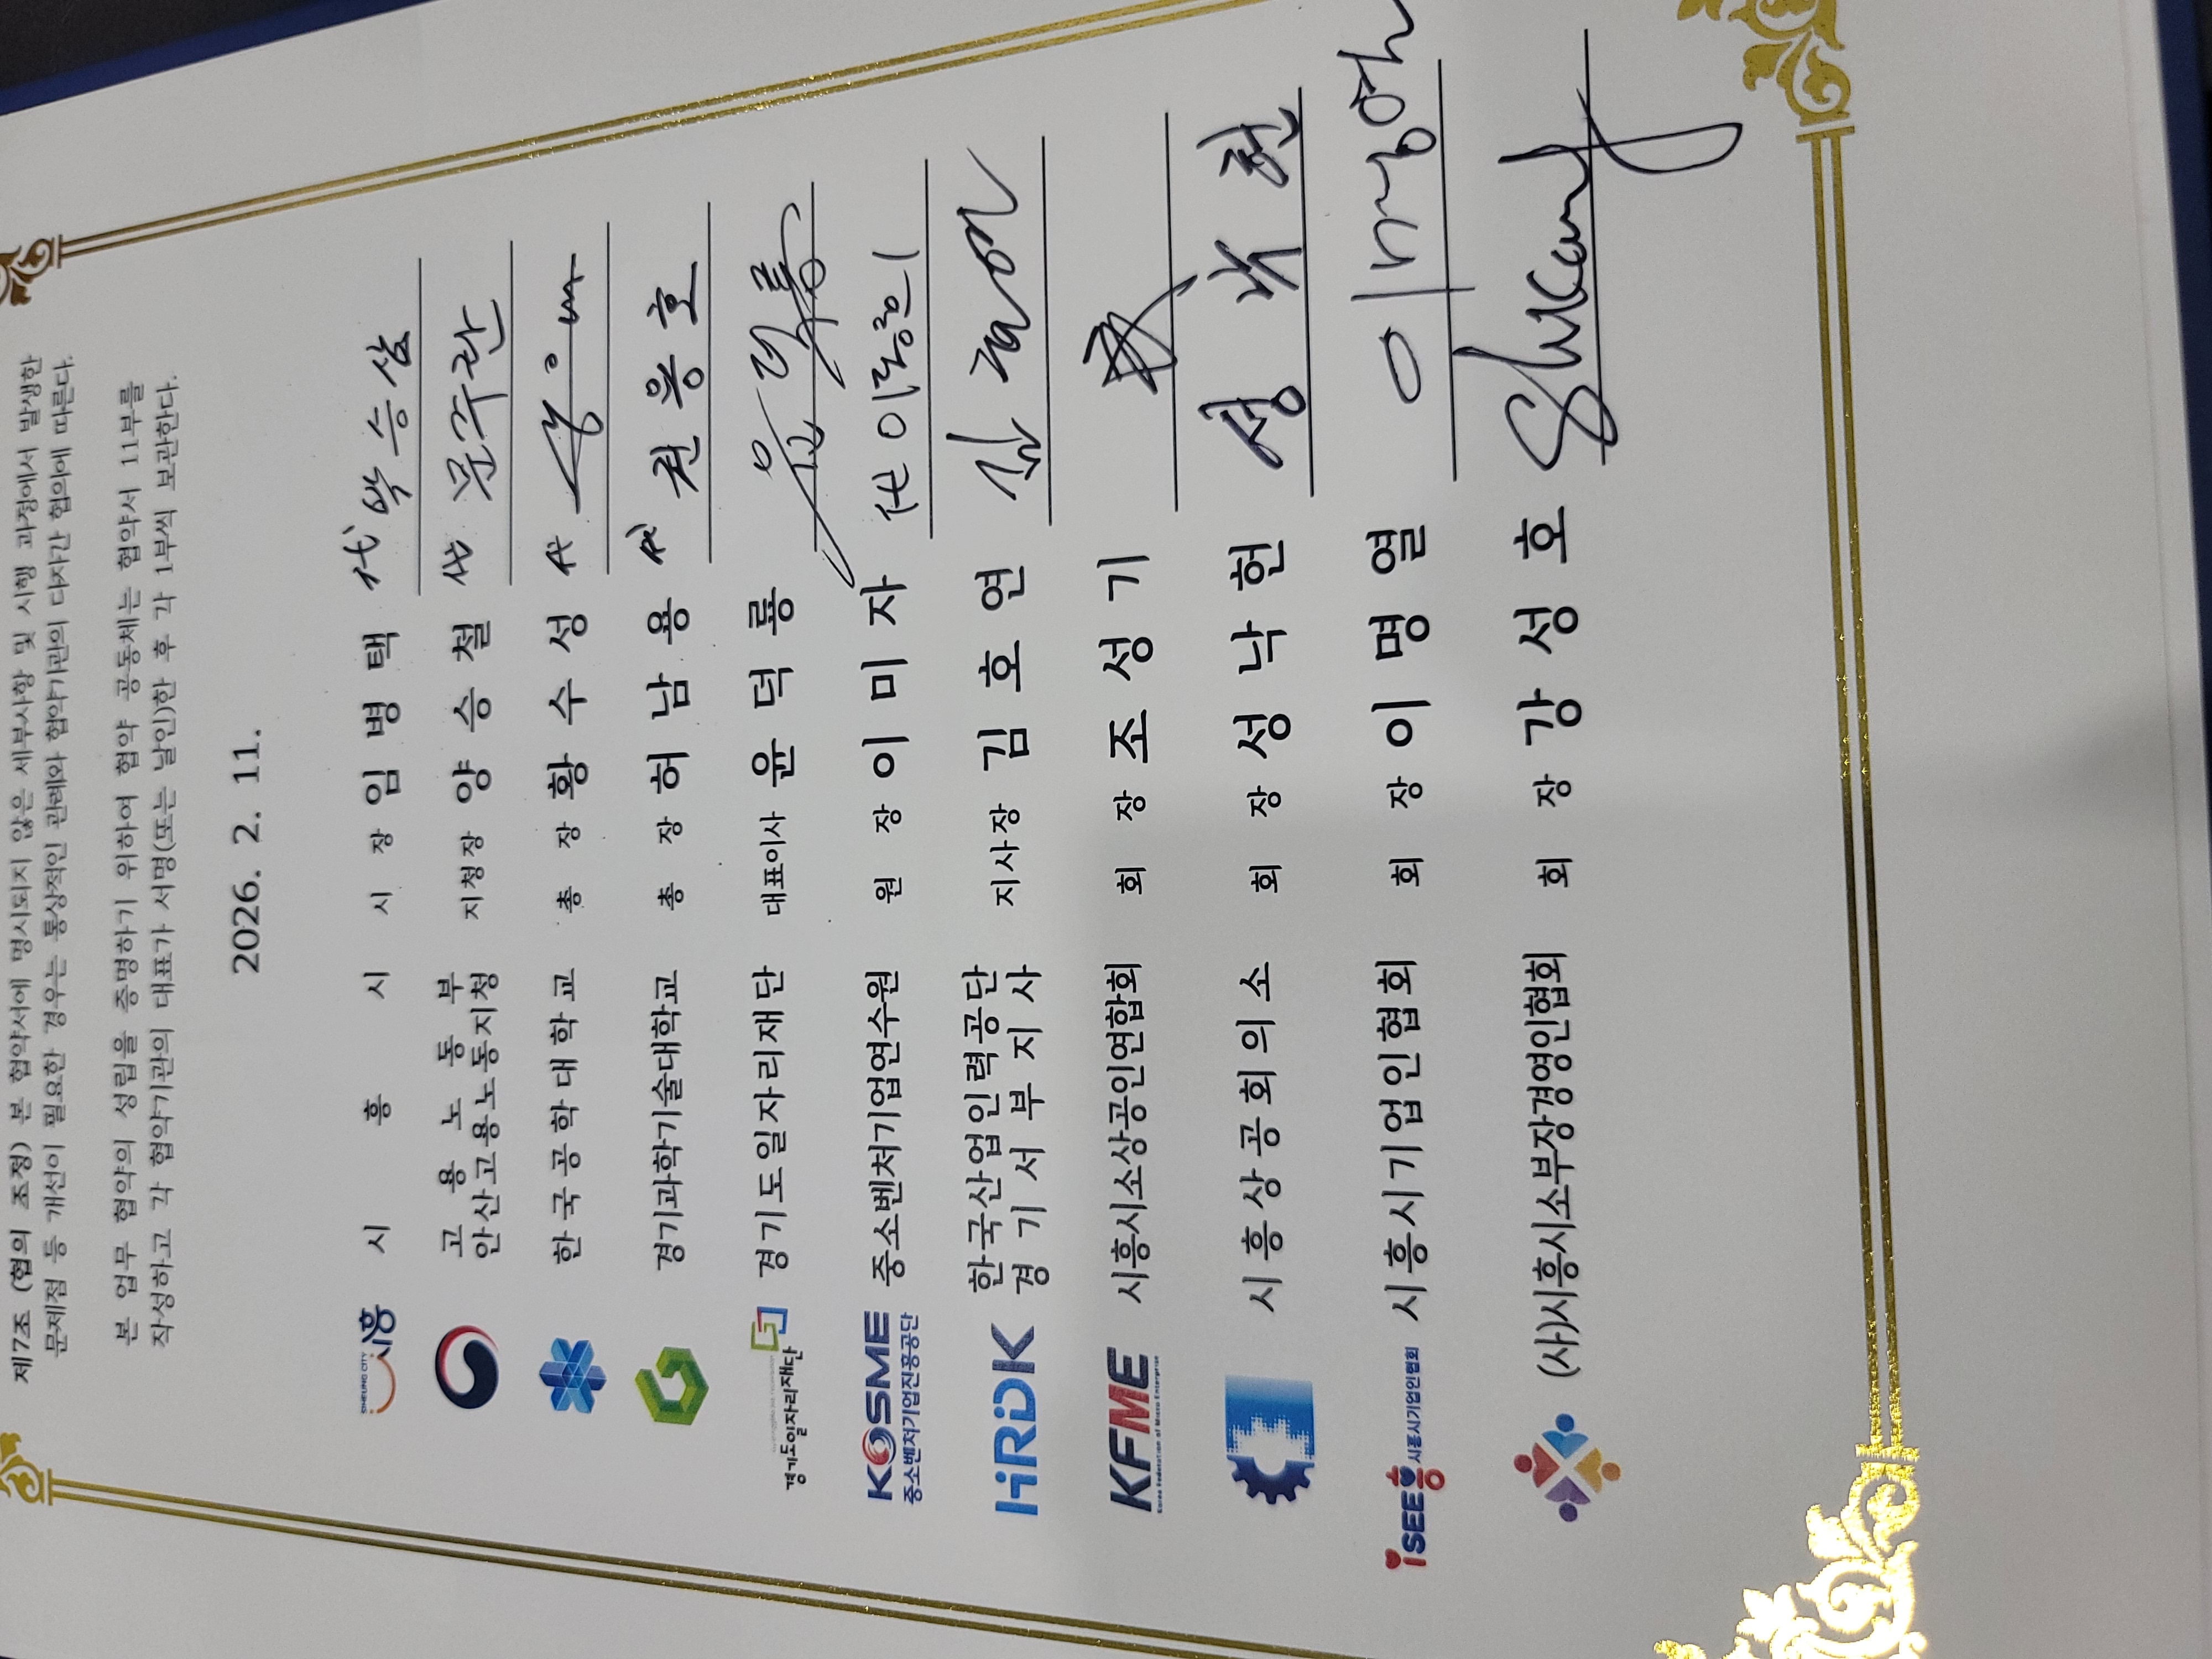 제7조 (협의 조정) 본 협약서에 명시되지 않은 세부사항 및 시행 과정에서 발생한
문제점 등 개선이 필요한 경우는 통상적인 관례와 협약기관의 다자간 협의에 따른다.
본 업무 협약의 성립을 증명하기 위하여 협약 공동체는 협약서 11부를
작성하고 각 협약기관의 대표가 서명(또는 날인)한 후 각 1부씩 보관한다.
2026. 2. 11.
SIHEUNG CITY 시흥 시 흥 시 시 장 임 병 택 代 박승삼
고 용 노 동 부
안산고용노동지청 지청장 양 승 철 代 문주관
한국공학대학교 총 장 황 수 성 代
경기과학기술대학교 총 장 허 남 용 代 권용호
경기도일자리재단 경기도일자리재단 대표이사 윤 덕 룡 윤덕룡
KOSME 중소벤처기업진흥공단 중소벤처기업연수원 원 장 이 미 자 代
HRDK 한국산업인력공단
경 기 서 부 지 사 지사장 김 호 연
KFME Korea Federation of Micro Enterprise 시흥시소상공인연합회 회 장 조 성 기
시흥상공회의소 회 장 성 낙 헌 성낙헌
iSEE흥 시흥시기업인협회 시흥시기업인협회 회 장 이 명 열
(사)시흥시소부장경영인협회 회 장 강 성 호